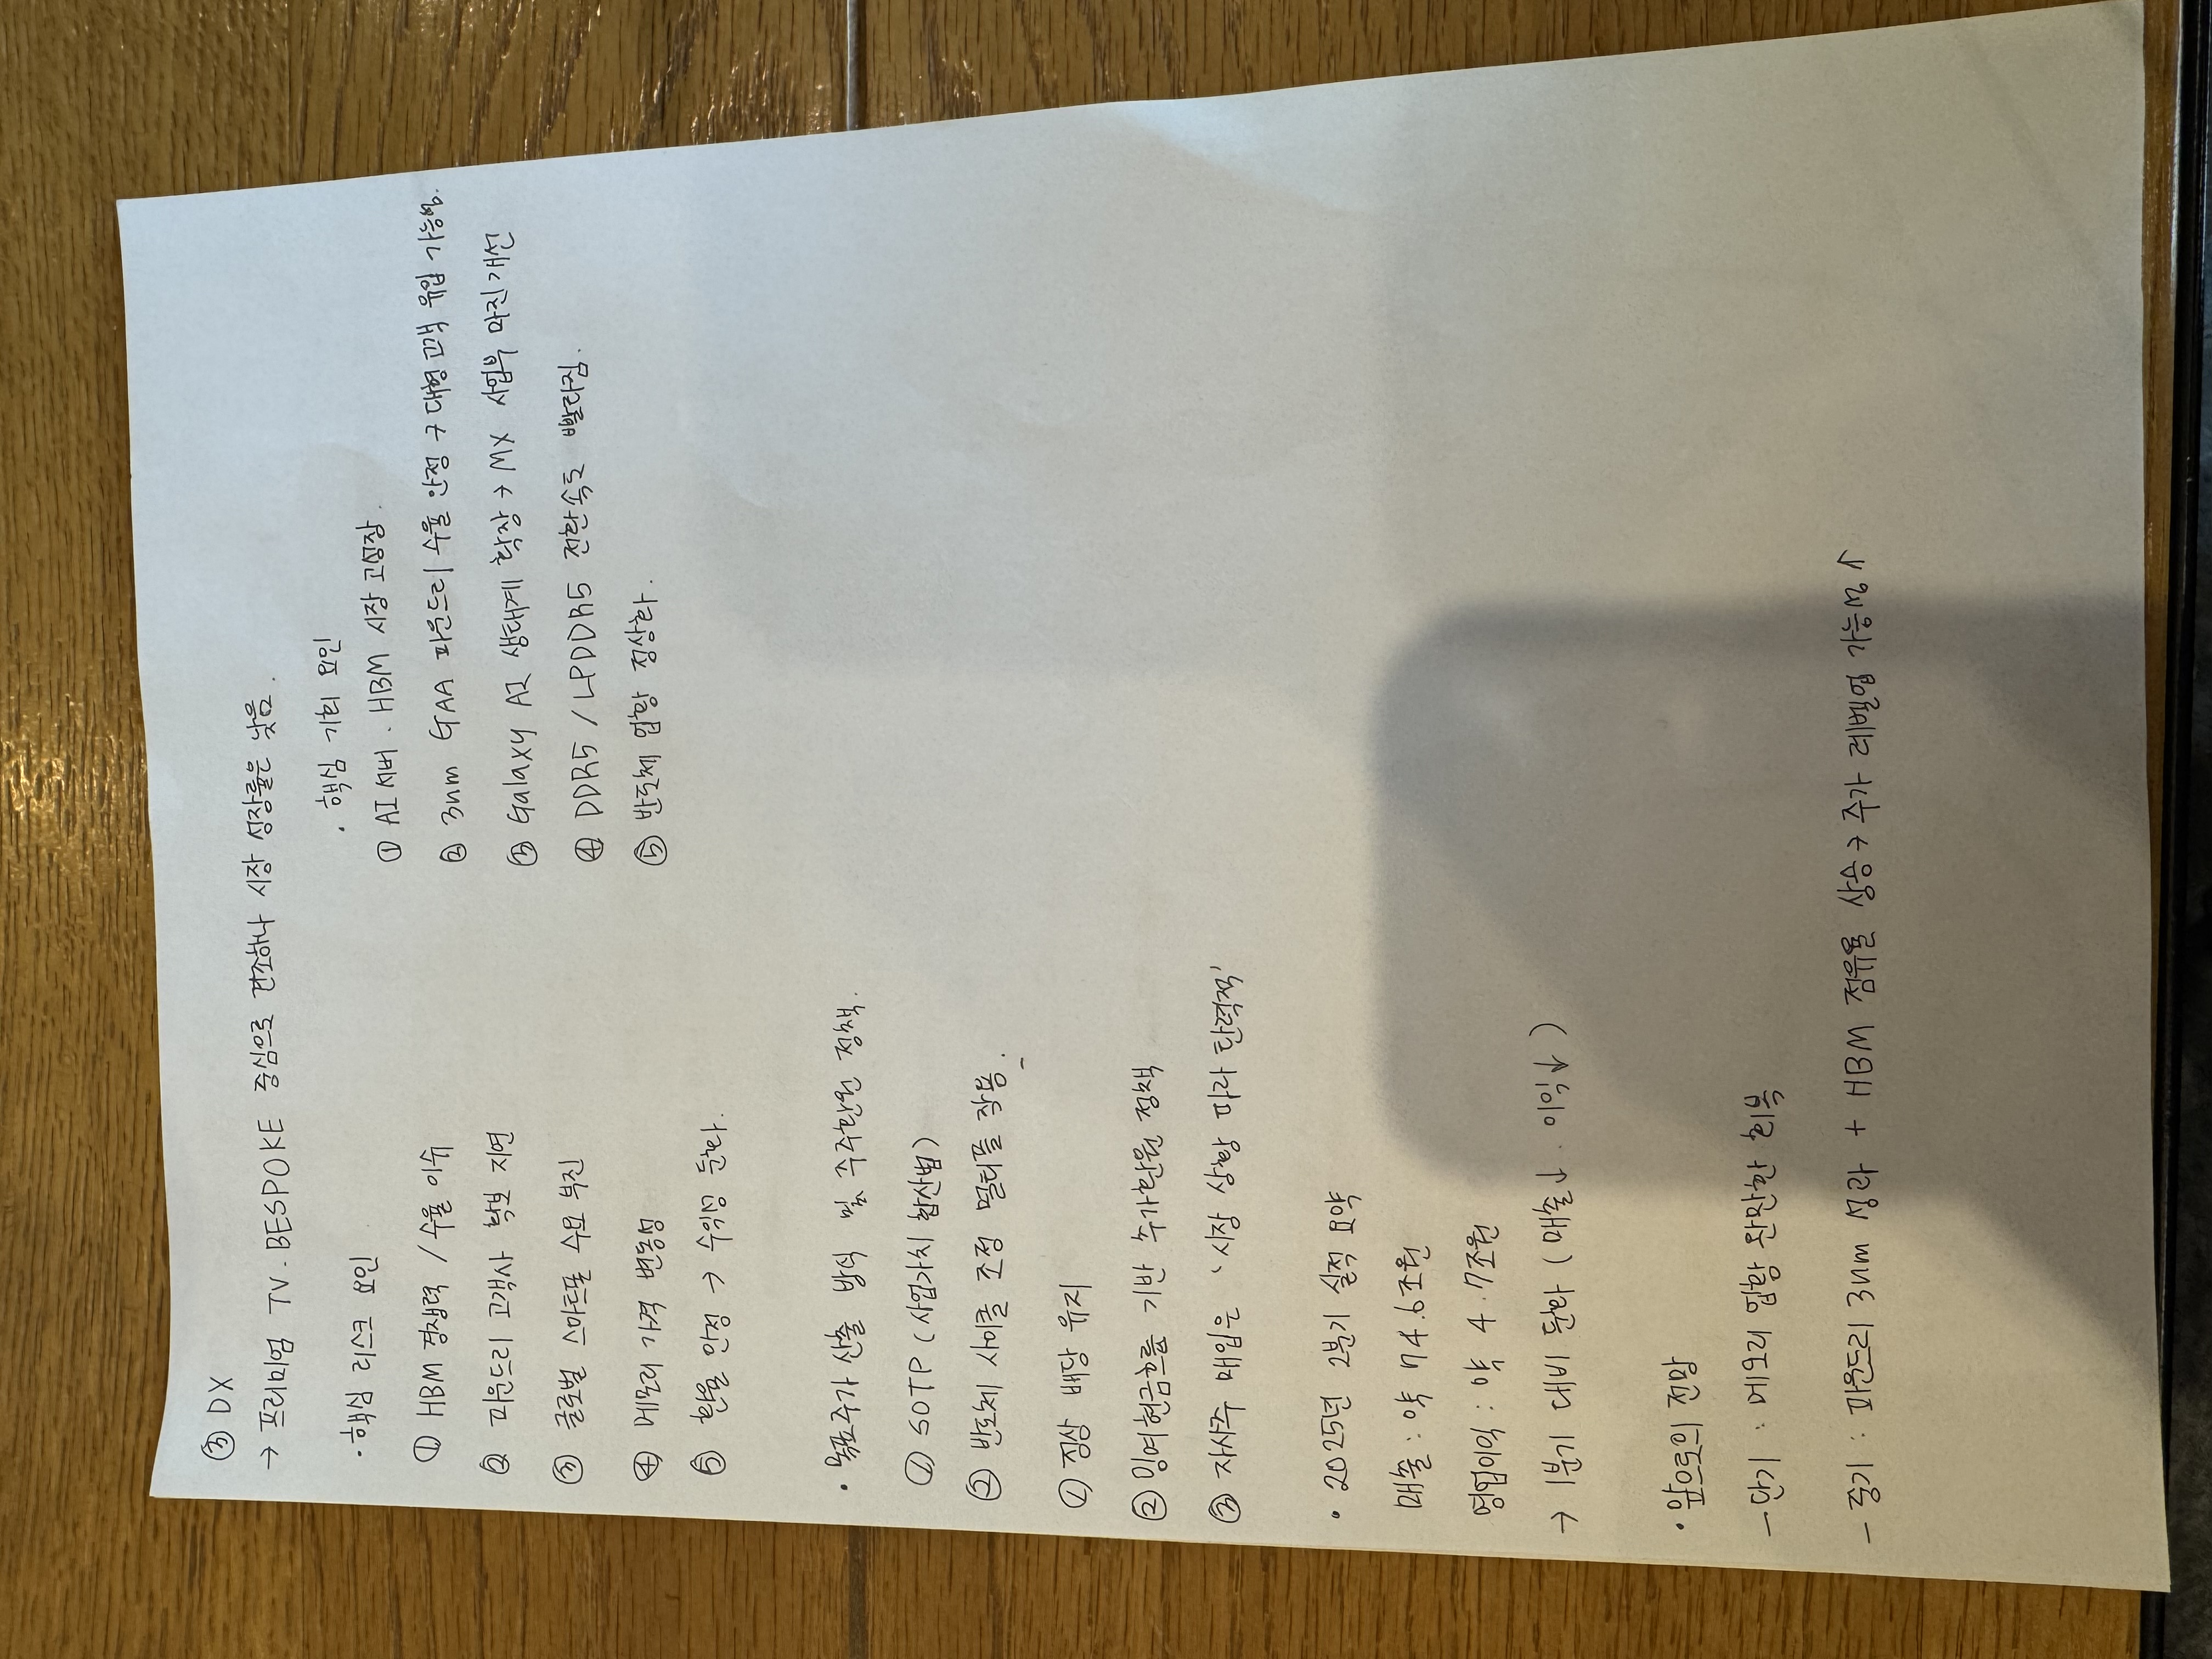 ③ DX
→ 프리미엄 TV·BESPOKE 중심으로 견조하나 시장 성장률은 낮음.
· 핵심 리스크 요인
① HBM 경쟁력 / 수율 이슈
② 파운드리 고객사 확보 지연
③ 글로벌 스마트폰 수요 부진
④ 메모리 가격 변동성
⑤ 환율 안정 → 수익성 둔화.
· 핵심 기회 요인
① AI 서버·HBM 시장 고성장.
② 3nm GAA 파운드리 수율 안정 → 대형 고객 유입 가능성.
③ Galaxy AI 생태계 확장 → MX 사업부 마진 개선
④ DDR5 / LPDDR5 전환속도 빨라짐.
⑤ 반도체 업황 정상화.
· 목표주가 산출 방식 및 주주환원 정책.
① SOTP (사업가치 합산법)
② 반도체 사이클 조정 멀티플 적용.
① 정상 배당 유지
② 잉여현금흐름 기반 추가환원 정책
③ 자사주 매입은 '시장 상황 따라 탄력적'
· 2025년 2분기 실적 요약
매출 : 약 74.6조원
영업이익 : 약 4.7조원
→ 1분기 대비 둔화 (매출↓·이익↓)
· 앞으로의 전망
– 단기 : 메모리 업황 완만한 회복
– 중기 : 파운드리 3nm 성과 + HBM 점유율 상승 → 주가 레벨업 가능성↑